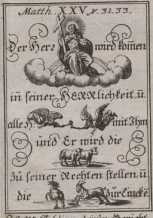 Matth. XXV. v. 31. 33.
Der Herr wird kom̃en
in̄ seiner HERRlichkeit. ū.
alle H mit Ihm
und Er wird die
zu seiner Rechten stellen ū
die zur Lincke